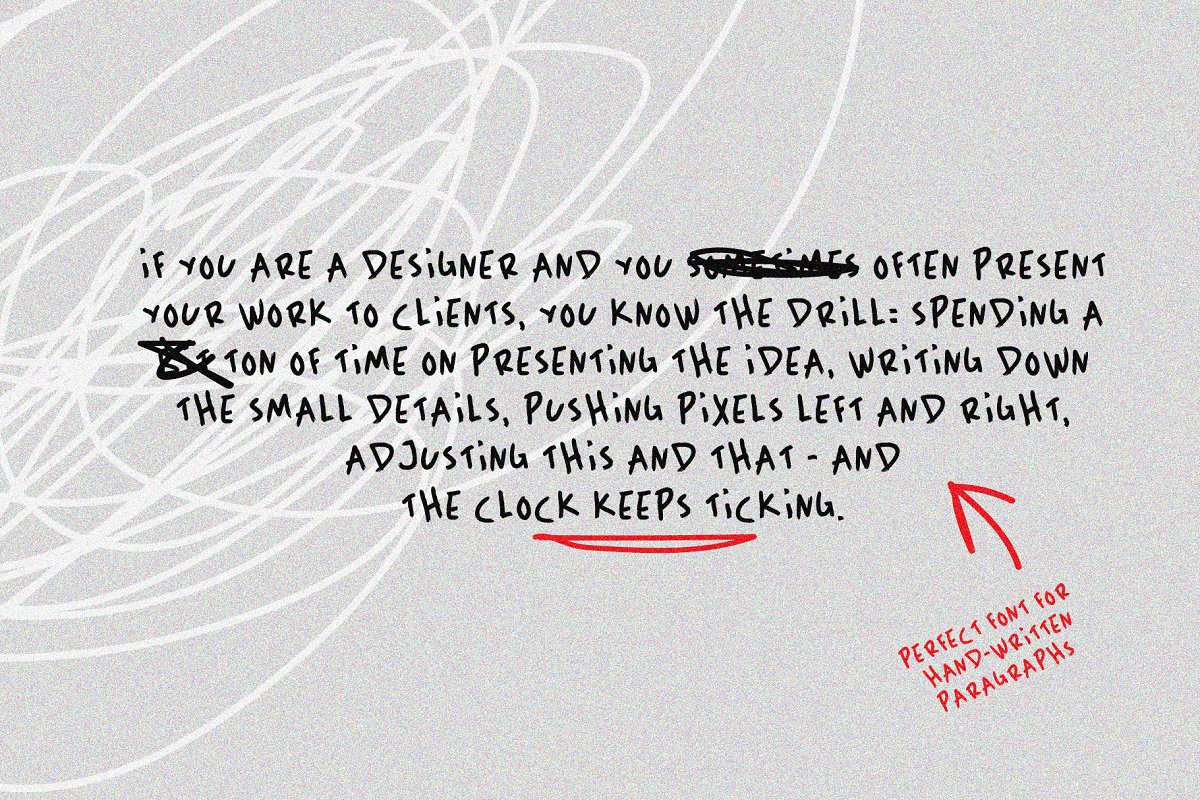 iF YOU ARE A DESiGNER AND YOU SOMETiMES OFTEN PRESENT
YOUR WORK TO CLiENTS, YOU KNOW THE DRiLL: SPENDiNG A
TON OF TiME ON PRESENTiNG THE iDEA, WRiTiNG DOWN
THE SMALL DETAiLS, PUSHiNG PiXELS LEFT AND RiGHT,
ADJUSTiNG THiS AND THAT - AND
THE CLOCK KEEPS TiCKiNG.
PERFECT FONT FOR
HAND-WRiTTEN
PARAGRAPHS